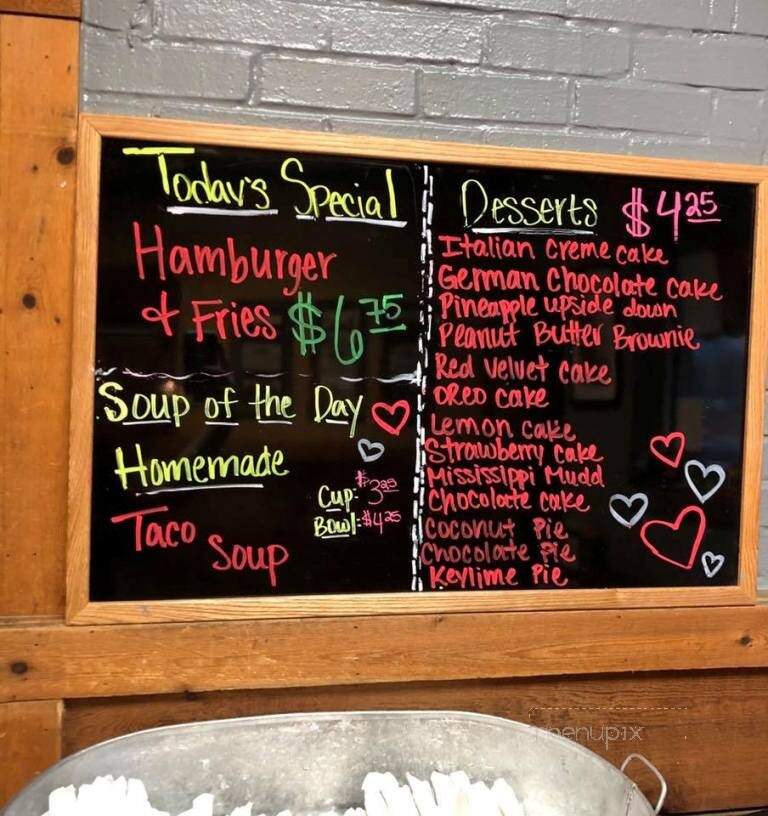 Today's Special
Hamburger
& Fries $6 75
Soup of the Day
Homemade
Cup: $3 25
Bowl: $4 25
Taco Soup
Desserts $4 25
Italian creme cake
German Chocolate cake
Pineapple upside down
Peanut Butter Brownie
Red velvet cake
OREO cake
Lemon cake
Strawberry cake
Mississippi Mudd
Chocolate cake
Coconut Pie
Chocolate Pie
Keylime Pie
menupix